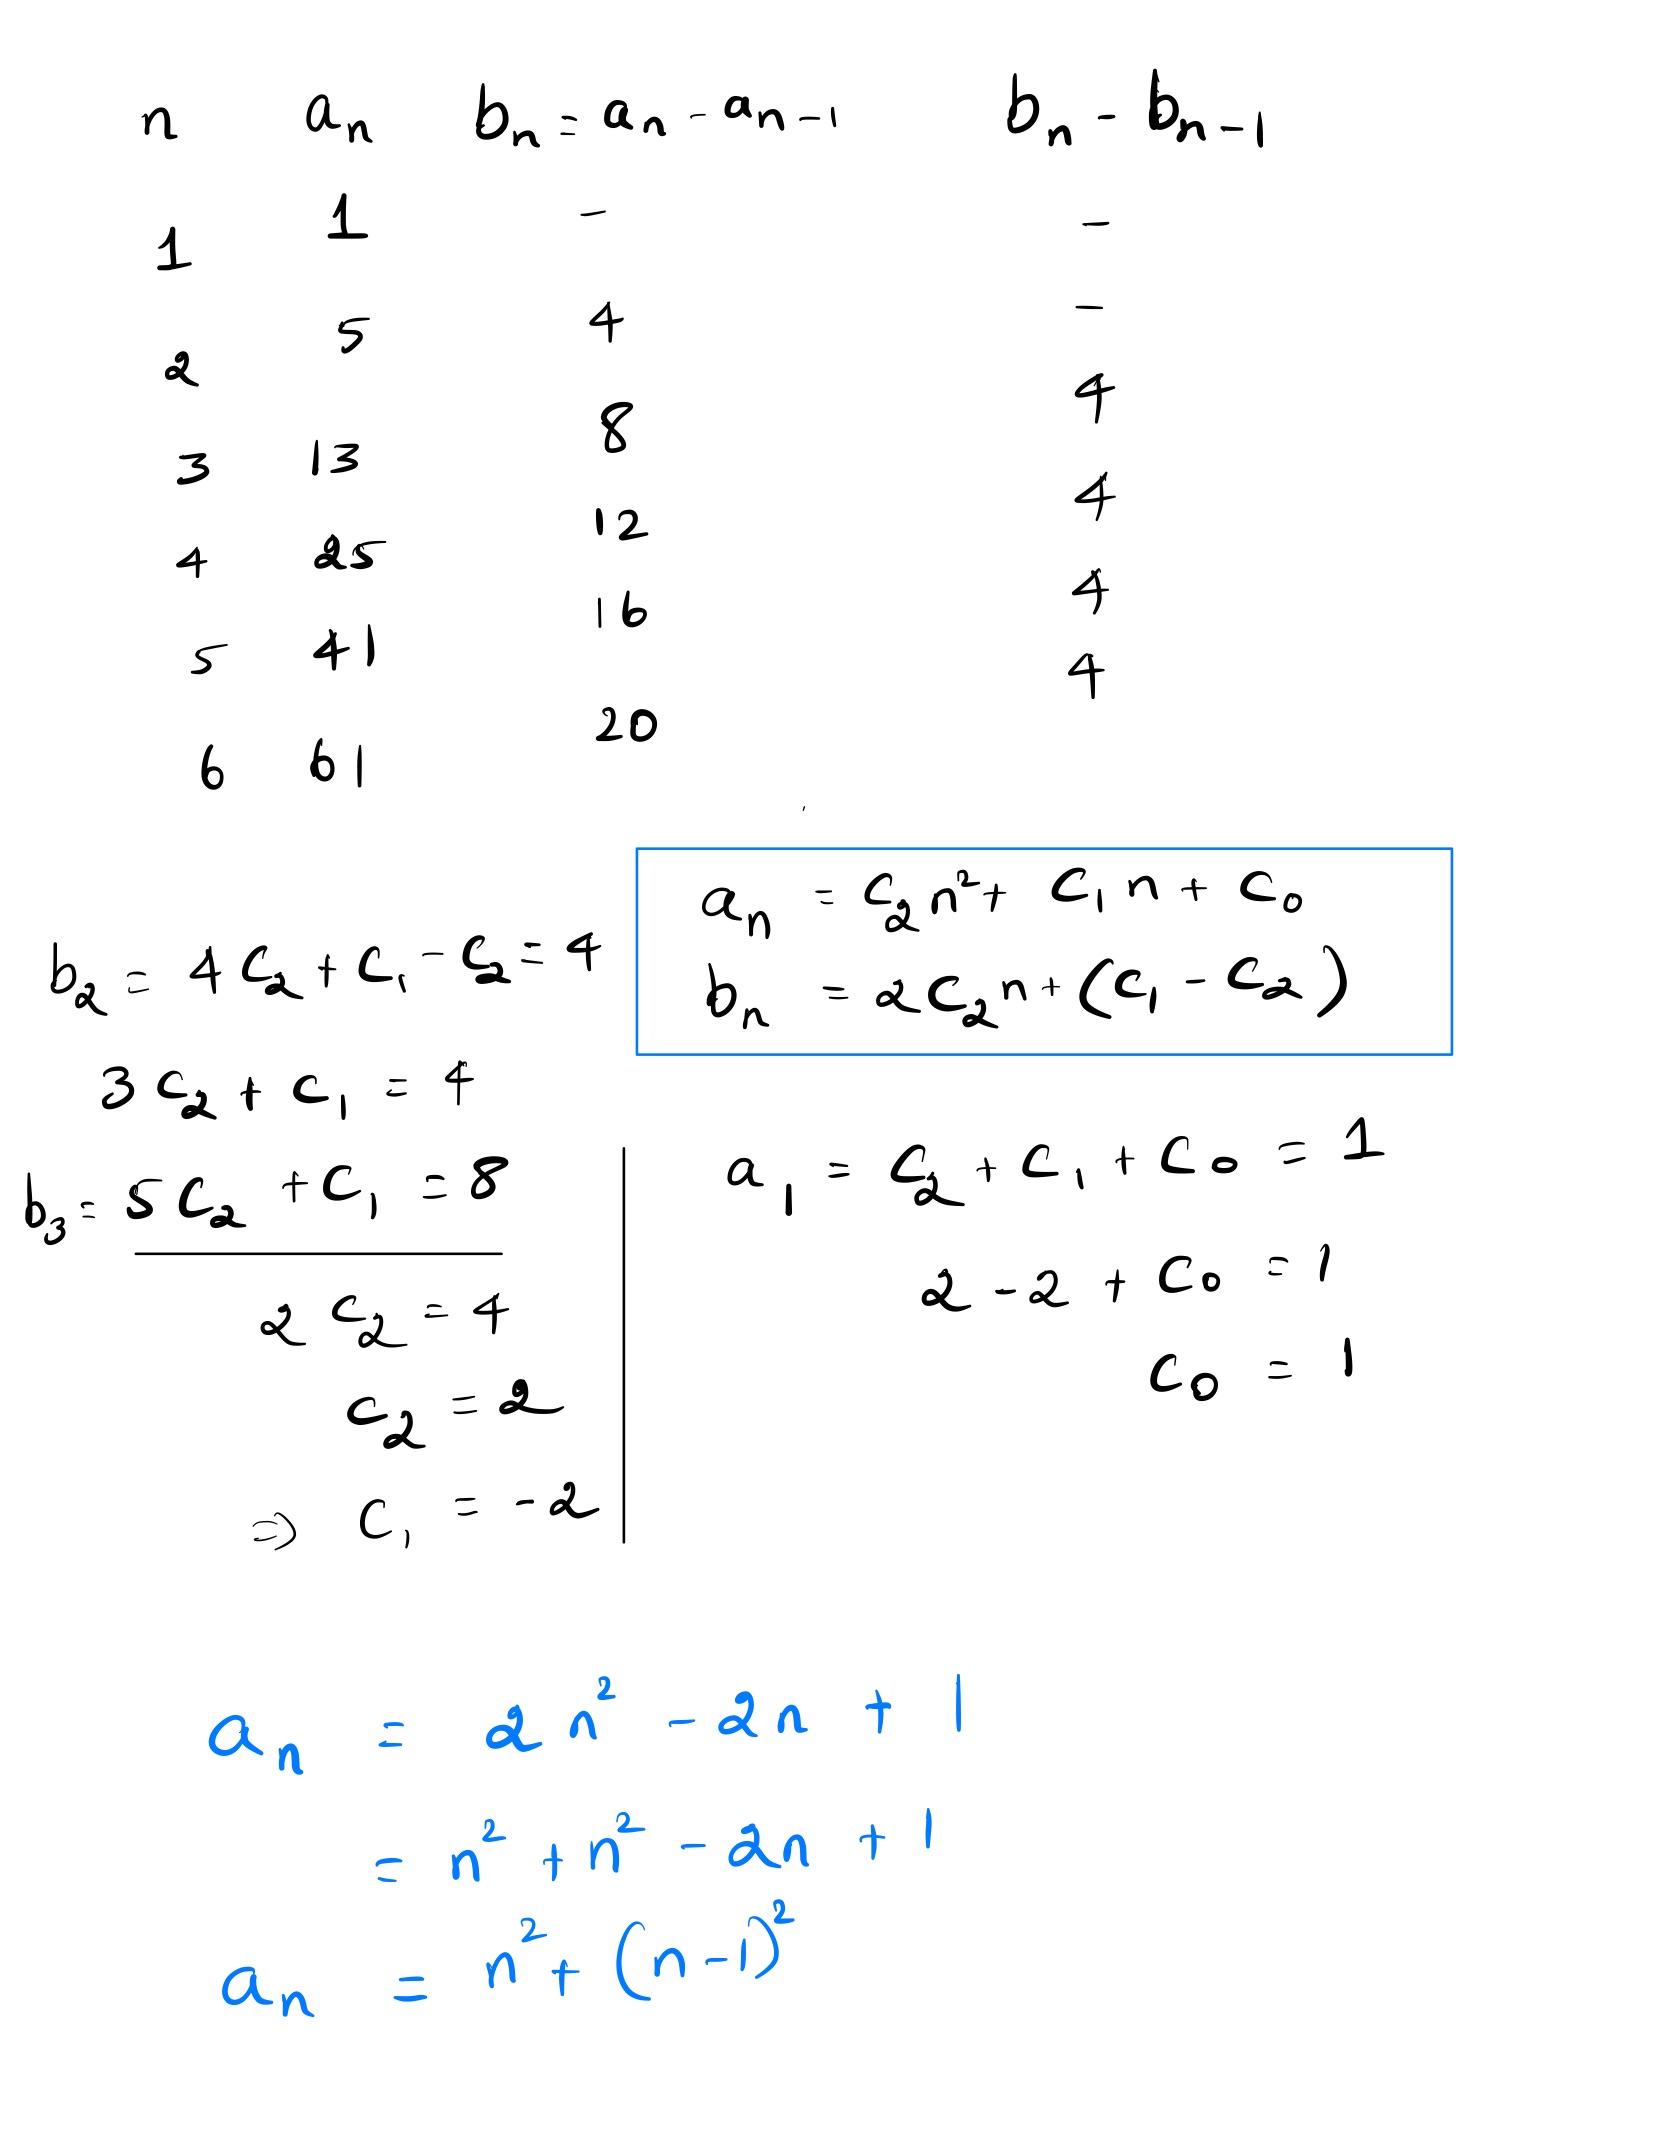 n aₙ bₙ = aₙ - aₙ₋₁ bₙ - bₙ₋₁
1 1 - -
2 5 4 -
3 13 8 4
4 25 12 4
5 41 16 4
6 61 20 4
aₙ = C₂n² + C₁n + C₀
bₙ = 2C₂n + (C₁ - C₂)
b₂ = 4C₂ + C₁ - C₂ = 4
3C₂ + C₁ = 4
b₃ = 5C₂ + C₁ = 8
2C₂ = 4
C₂ = 2
⇒ C₁ = -2
a₁ = C₂ + C₁ + C₀ = 1
2 - 2 + C₀ = 1
C₀ = 1
aₙ = 2n² - 2n + 1
= n² + n² - 2n + 1
aₙ = n² + (n-1)²